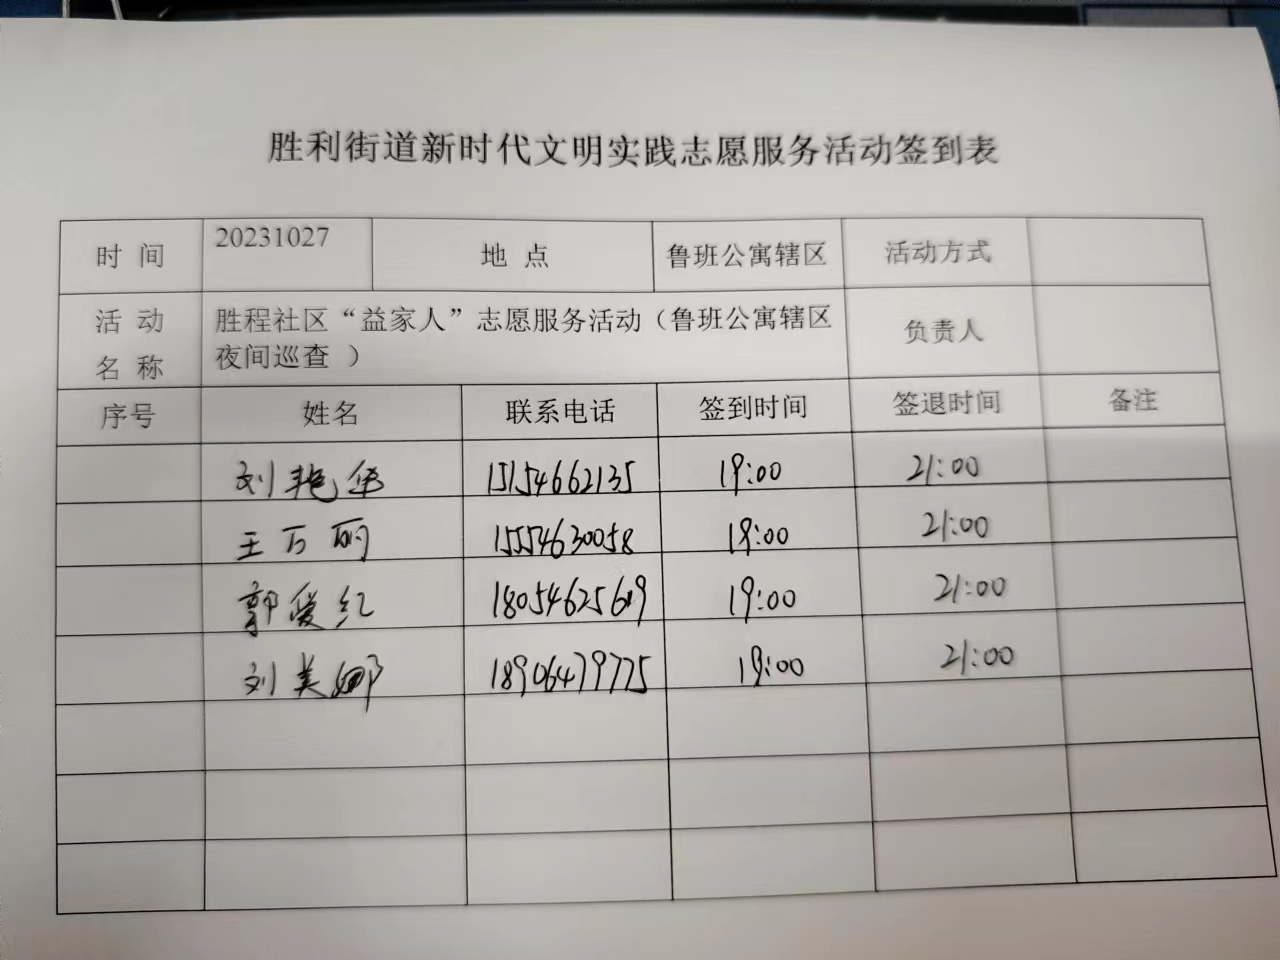 胜利街道新时代文明实践志愿服务活动签到表
时 间 20231027 地 点 鲁班公寓辖区 活动方式
活 动 名 称 胜程社区“益家人”志愿服务活动（鲁班公寓辖区 负责人
夜间巡查 ）
序号 姓名 联系电话 签到时间 签退时间 备注
刘艳华 15154662135 19:00 21:00
王万丽 15554630058 19:00 21:00
郭爱红 19:00 21:00
刘美娜 18906479775 19:00 21:00